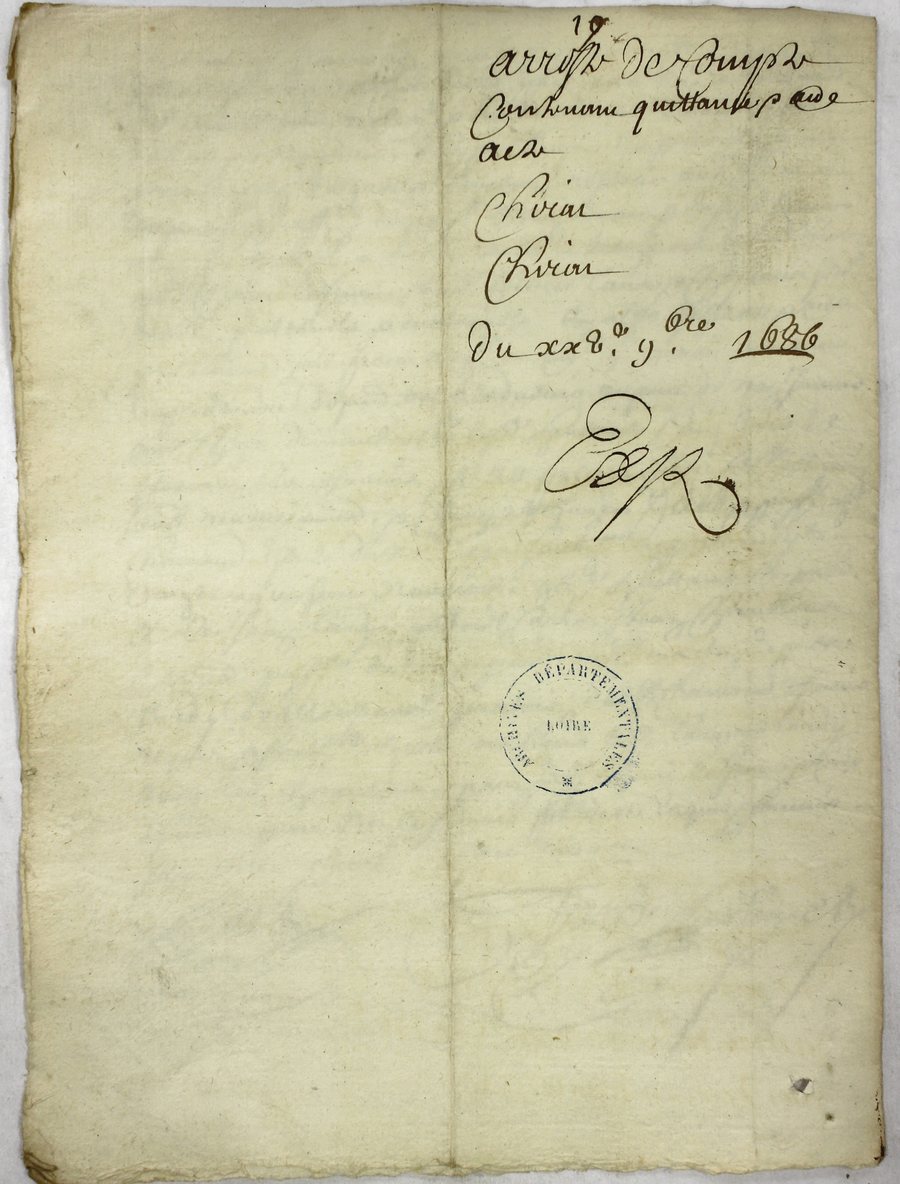 19
arreste de Compte
Contenant quittance p
acte
Chirat
Chirat
Du xxve 9.bre 1686
Exp
ARCHIVES DÉPARTEMENTALES
LOIRE